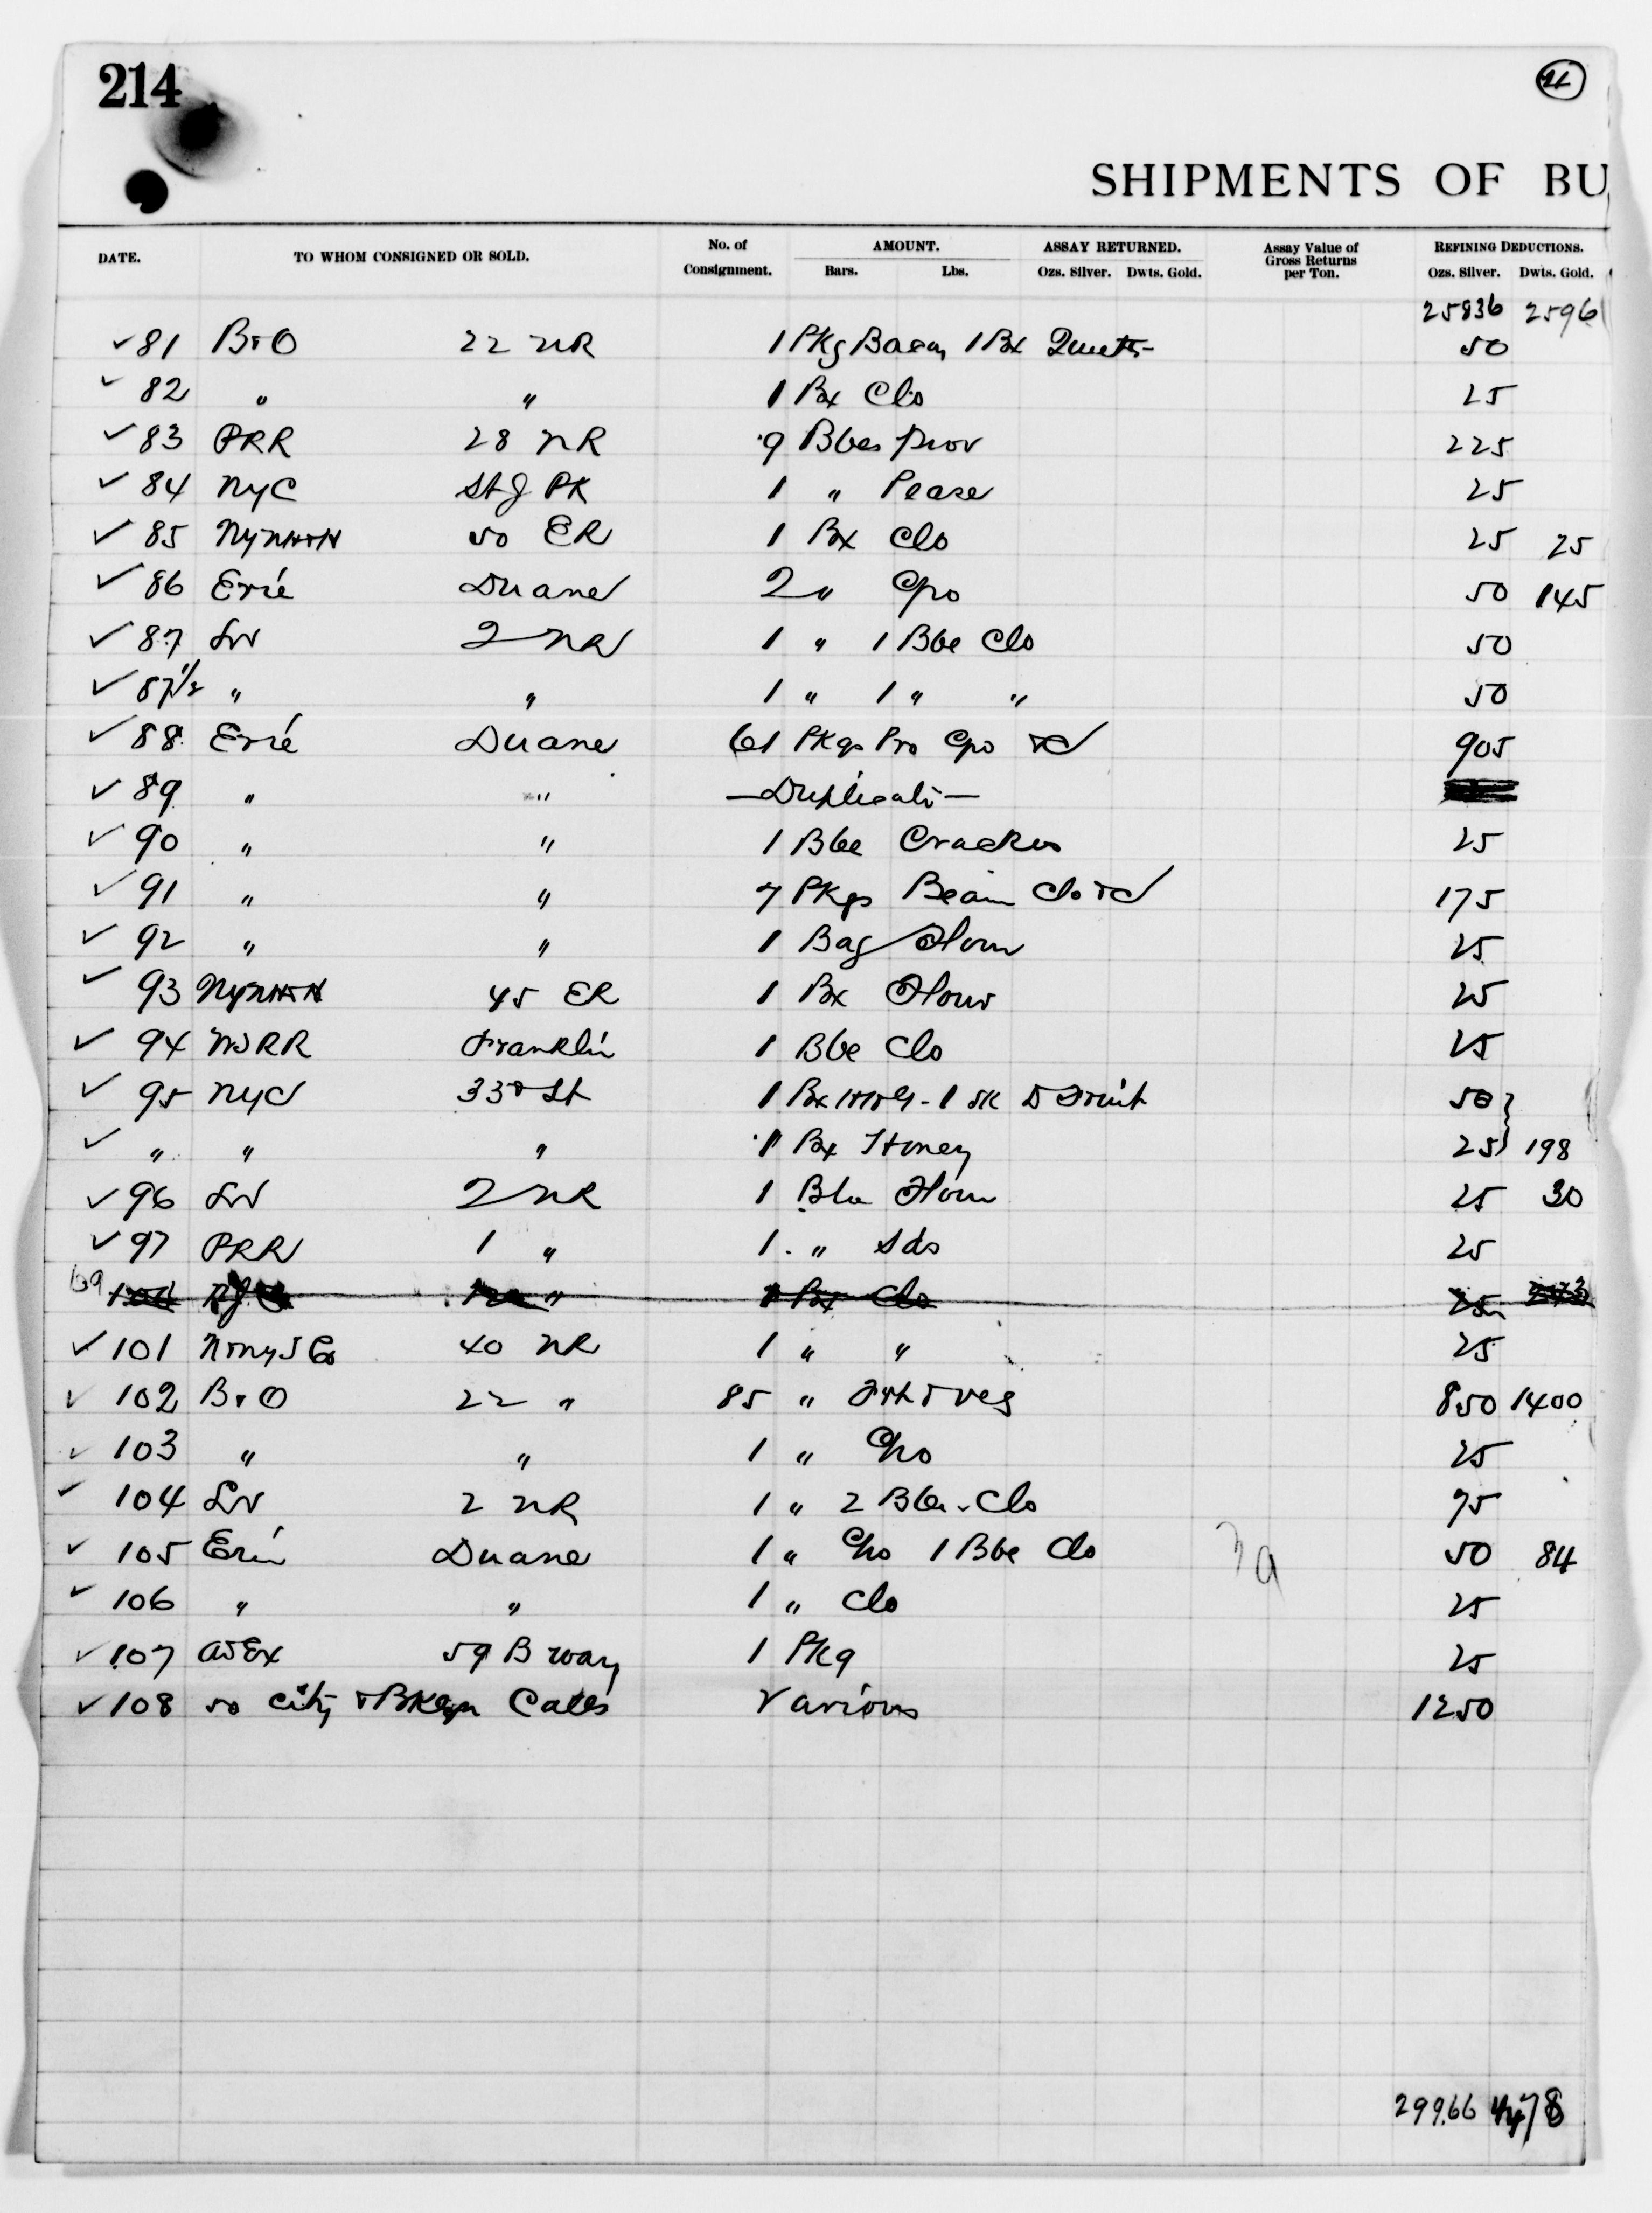 214
21
SHIPMENTS OF BU
DATE. TO WHOM CONSIGNED OR SOLD. No. of Consignment. AMOUNT. Bars. Lbs. ASSAY RETURNED. Ozs. Silver. Dwts. Gold. Assay Value of Gross Returns per Ton. REFINING DEDUCTIONS. Ozs. Silver. Dwts. Gold.
25836 2596
✓ 81 B&O 22 NR 1 Pkg 1 Bx 50
✓ 82 " " 1 Bx Clo 25
✓ 83 PRR 28 NR 9 Bbls Prov 225
✓ 84 NYC St J PK 1 " Pease 25
✓ 85 NYNH&H 50 ER 1 Bx Clo 25 25
✓ 86 Erie Duane 2 " Gro 50 145
✓ 87 LV 2 NR 1 " 1 Bbl Clo 50
✓ 87 1/2 " " 1 " 1 " " 50
✓ 88 Erie Duane 61 Pkgs Pro Gro &c 905
✓ 89 " " — Duplicate —
✓ 90 " " 1 Bbl Crackers 25
✓ 91 " " 7 Pkgs Bean Clo &c 175
✓ 92 " " 1 Bag Flour 25
✓ 93 NYNH&H 45 ER 1 Bx Flour 25
✓ 94 WSRR Franklin 1 Bbl Clo 25
✓ 95 NYC 33d St 1 Bx HHG - 1 SK D Fruit 50
✓ " " " 1 Bx Honey 25 198
✓ 96 LV 2 NR 1 Bbl Flour 25 30
✓ 97 PRR 1 " 1 " Sds 25
69 1 Bx Clo 25
✓ 101 40 NR 1 " " 25
✓ 102 B&O 22 " 85 " Frt & Veg 850 1400
✓ 103 " " 1 " Gro 25
✓ 104 LV 2 NR 1 " 2 Bbls Clo 75
✓ 105 Erie Duane 1 " Gro 1 Bbl Clo 50 84
✓ 106 " " 1 " Clo 25
✓ 107 Ex 59 B way 1 Pkg 25
✓ 108 50 City & Bklyn Calls Various 1250
299.66 4478